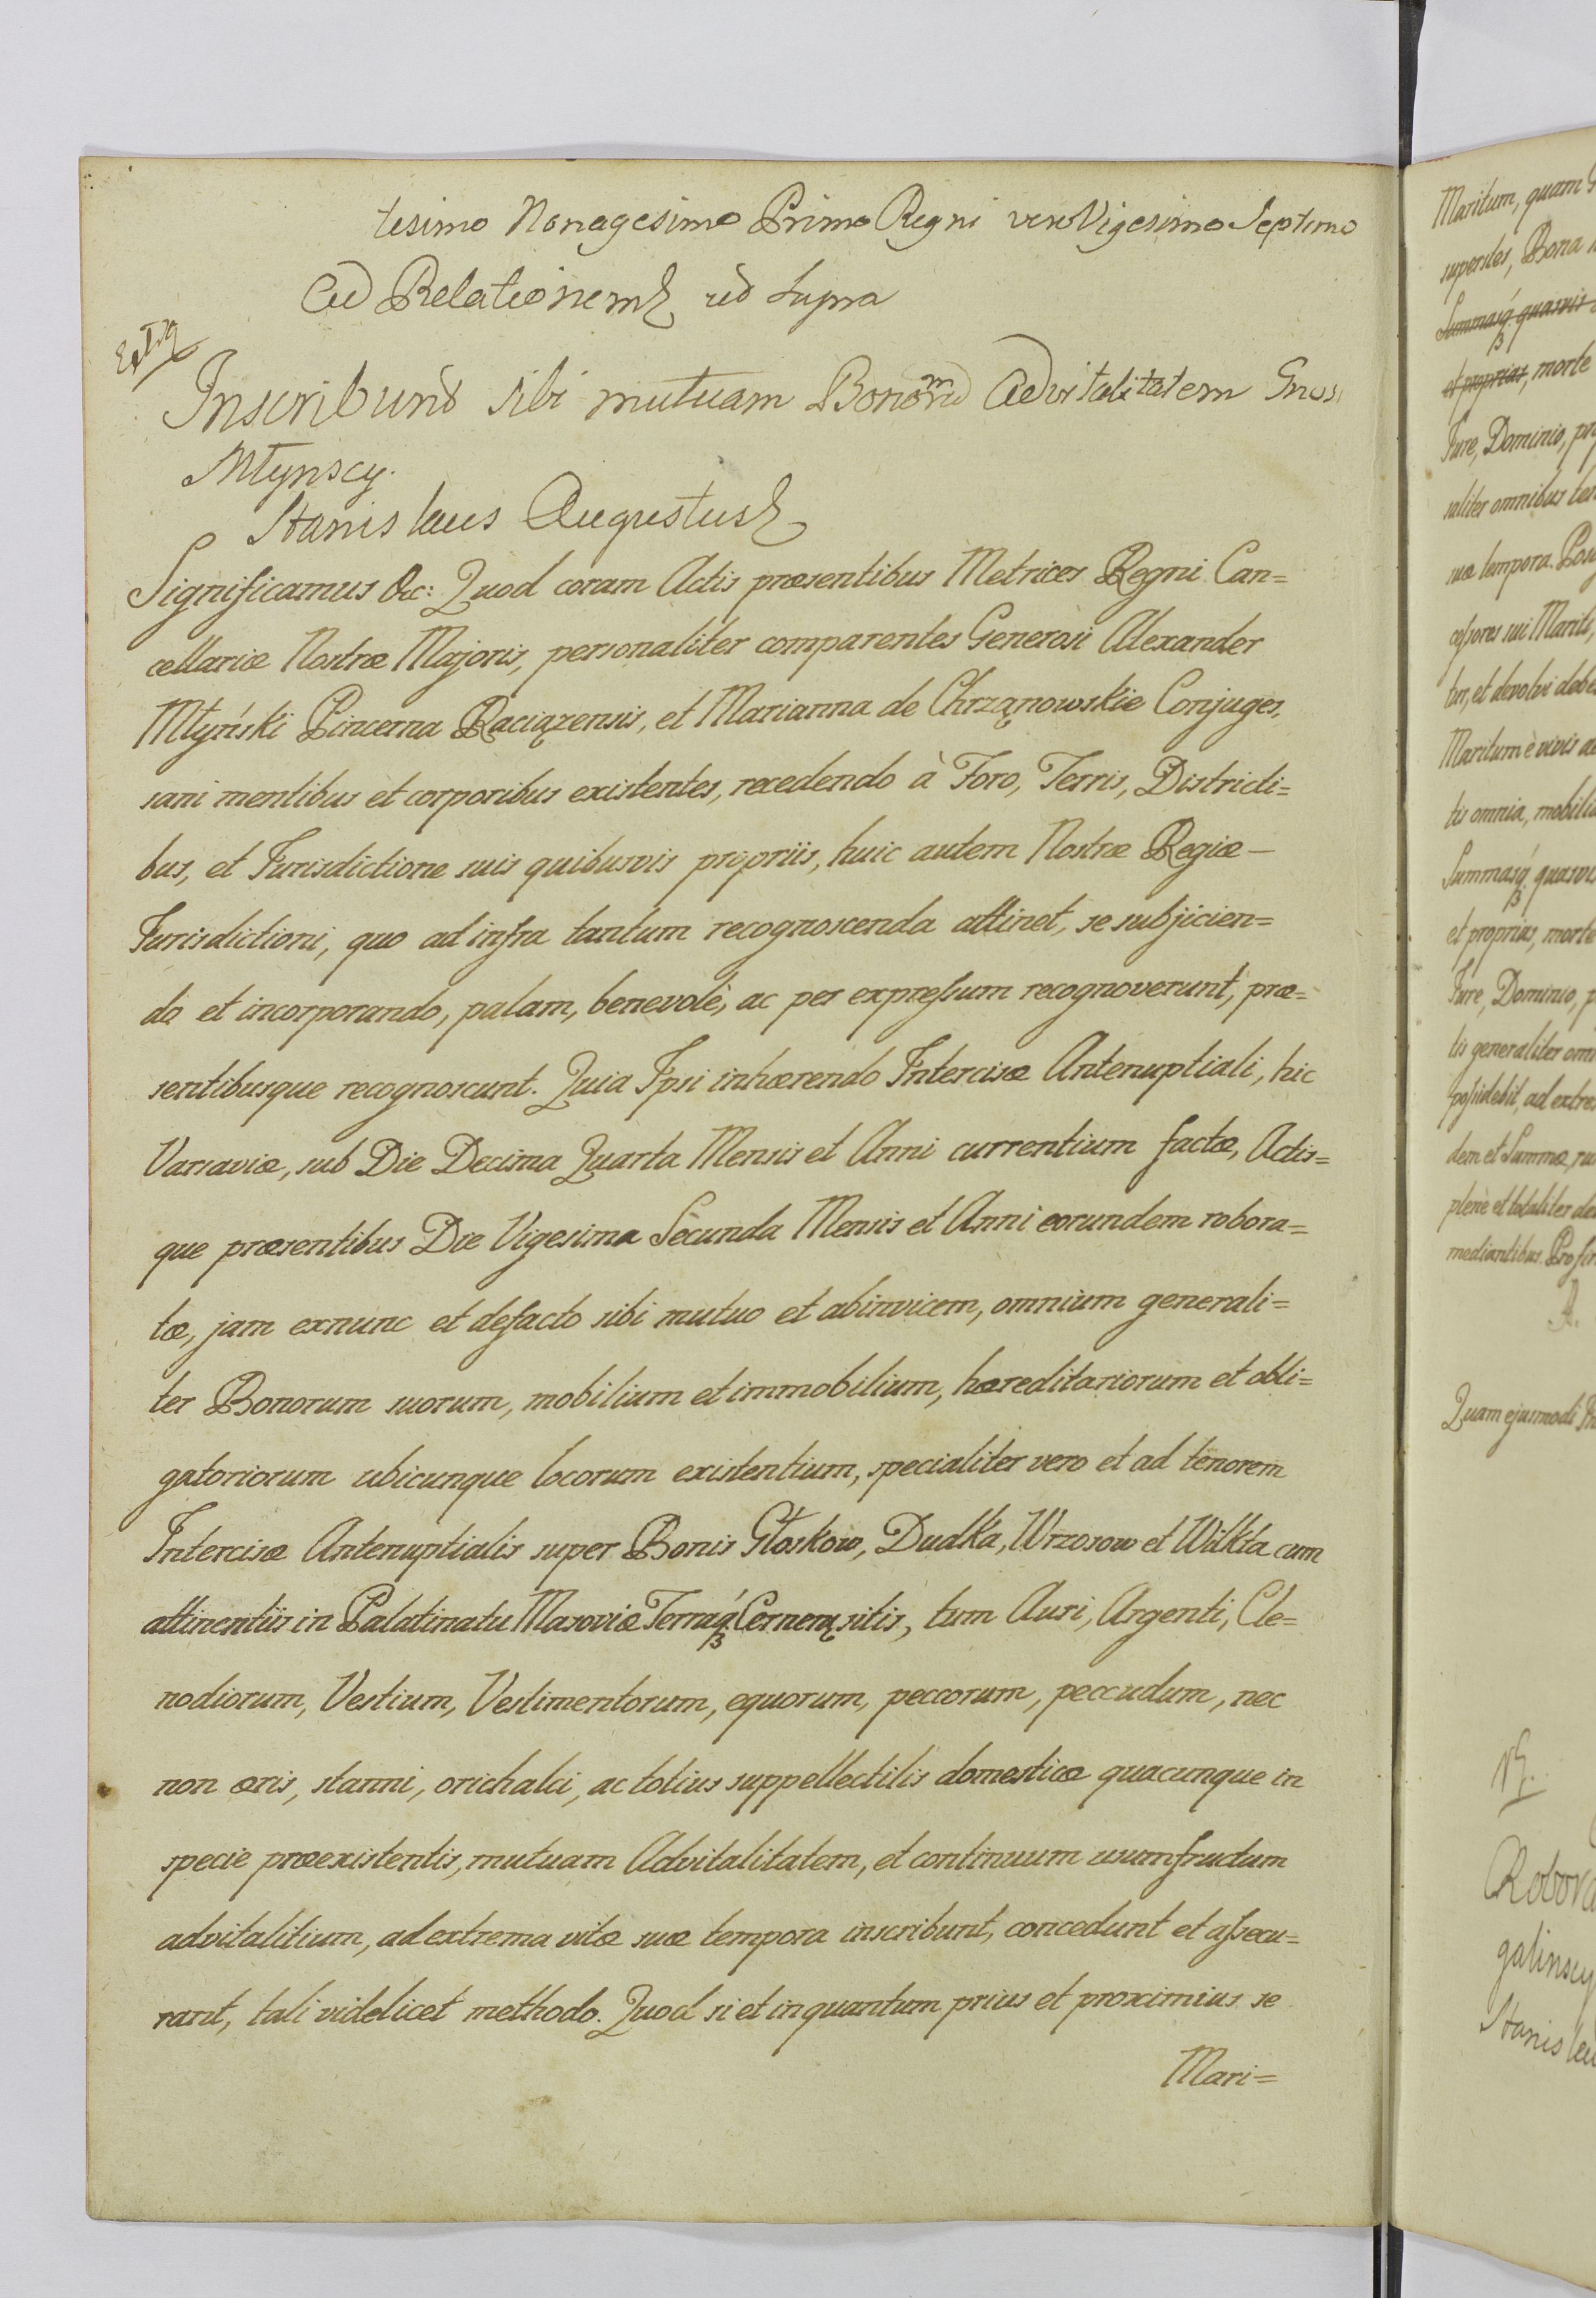 tesimo Nonagesimo Primo Regni vero Vigesimo Septimo
Ad Relationem ut supra
Inscribunt sibi mutuam Bonorum Advitalitatem Gnosi
Młynscy.
Stanislaus Augustus
Significamus &c: Quod coram Actis præsentibus Metrices Regni Can=
cellariæ Nostræ Majoris, personaliter comparentes Generosi Alexander
Młyński Pincerna Raciązensis, et Marianna de Chrząnowskie Conjuges,
sani mentibus et corporibus existentes, recedendo à Foro, Terris, Districti=
bus, et Jurisdictione suis quibusvis propriis, huic autem Nostræ Regiæ –
Jurisdictioni, quo ad infra tantum recognoscenda attinet, se subjicien=
do et incorporando, palam, benevolè, ac per expreſsum recognoverunt, præ=
sentibusque recognoscunt. Quia Ipsi inhærendo Intercisæ Antenuptiali, hic
Varsaviæ, sub Die Decima Quarta Mensis et Anni currentium factæ, Actis=
que præsentibus Die Vigesima Secunda Mensis et Anni eorundem robora=
tæ, jam exnunc et defacto sibi mutuo et abinvicem, omnium generali=
ter Bonorum suorum, mobilium et immobilium, hæreditariorum et obli=
gatoriorum ubicunque locorum existentium, specialiter vero et ad tenorem
Intercisæ Antenuptialis super Bonis Głoskow, Dudka, Wrzosow et Wilkła cum
attinentiis in Palatinatu Masoviæ Terráq; Cernen: sitis, tum Auri, Argenti, Cle=
nodiorum, Vestium, Vestimentorum, equorum, peccorum, peccudum, nec
non æris, stanni, orichalci, ac totius suppellectilis domesticæ quacunque in
specie præexistentis, mutuam Advitalitatem, et continuum usumfructum
advitalitium, ad extrema vitæ suæ tempora inscribunt, concedunt et aſsecu=
rant, tali videlicet methodo. Quod si et inquantum prius et proximius se
Mari=
Maritum, quam
superstes, Bona
Summasq; quasvis
et proprias, morte
Jure, Dominio,
saliter omnibus
suæ tempora.
ceſsores sui Mariti,
tur, et devolvi
Maritum è vivis
tis omnia,
Summasq;
et proprias, morte
Jure, Dominio,
tis generaliter
poſsidebit, ad
dem et Summæ,
plenè et totaliter
mediantibus.
Quam ejusmodi